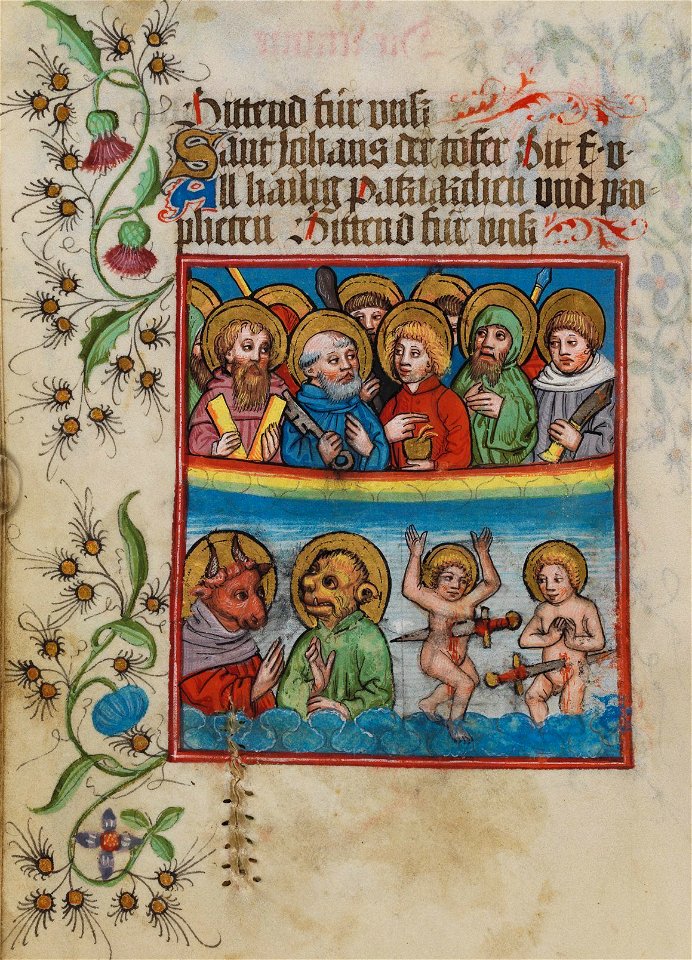 Bittend für vnß
Sant Johans der töfer Bit ℞ v
All hailig Patriarchen vnd pro-
pheten Bittend für vnß